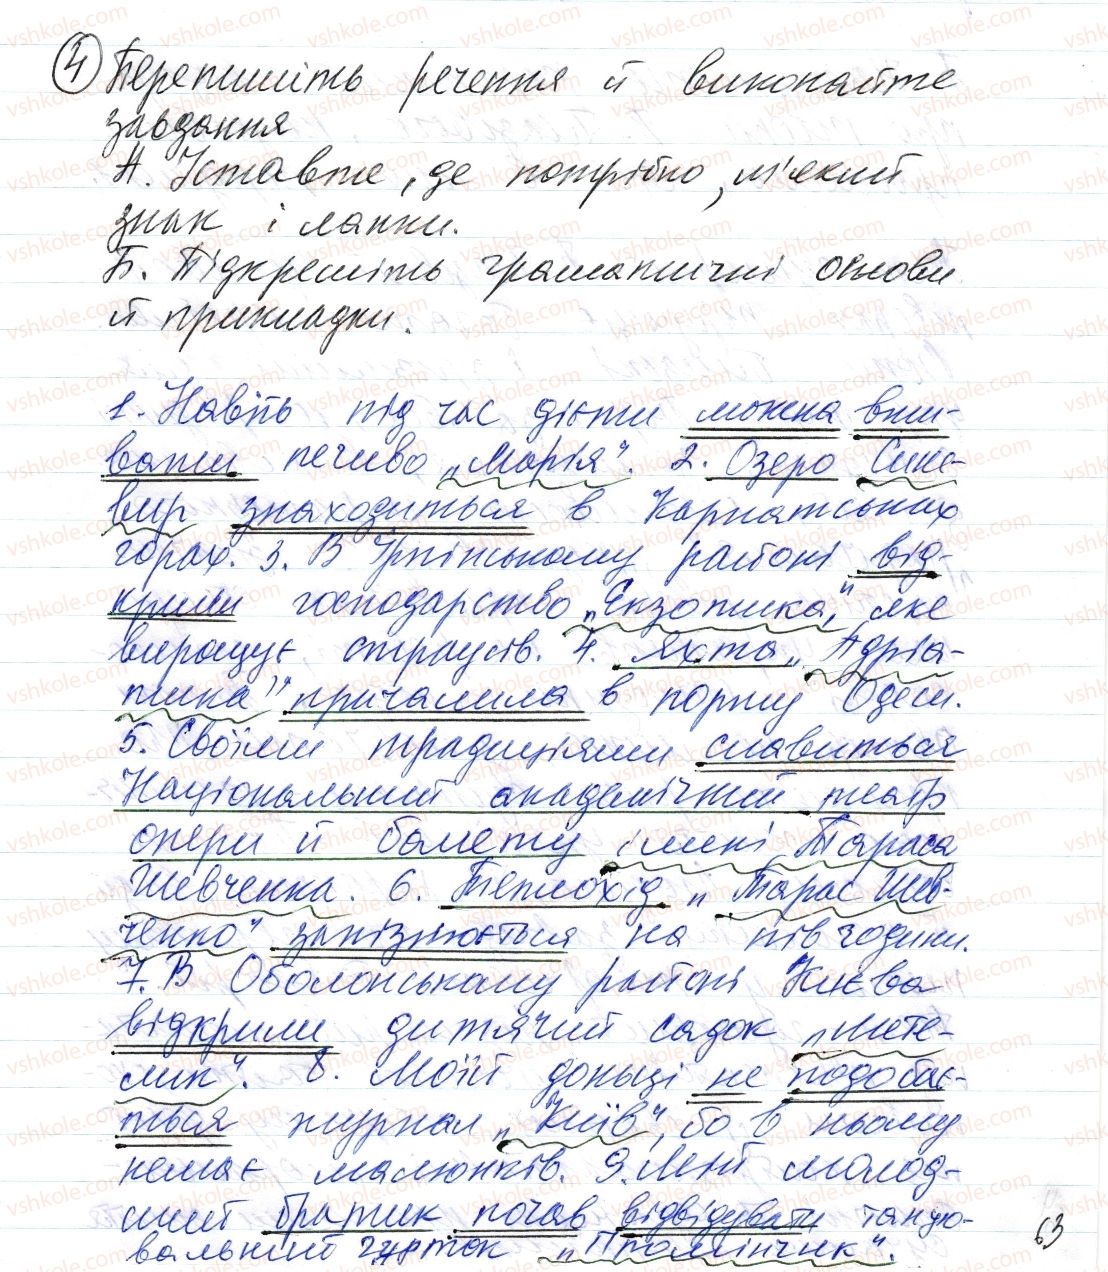 4 Перепишіть речення й виконайте
завдання
А. Уставте, де потрібно, м'який
знак і лапки.
Б. Підкресліть граматичні основи
й прикладки.
1. Навіть під час дієти можна вжи-
вати печиво „Марія". 2. Озеро Сине-
вир знаходиться в Карпатських
горах. 3. В Ірпінському районі від-
крили господарство „Екзотика", яке
вирощує страусів. 4. Яхта „Адріа-
тика" причалила в порту Одеси.
5. Своїми традиціями славиться
Національний академічний театр
опери й балету імені Тараса
Шевченка. 6. Теплохід „Тарас Шев-
ченко" запізнюється на пів години.
7. В Оболонському районі Києва
відкрили дитячий садок „Мете-
лик". 8. Моїй доньці не подобає-
ться журнал „Київ", бо в ньому
немає малюнків. 9. Мій молод-
ший братик почав відвідувати танцю-
вальний гурток „Промінчик".
63